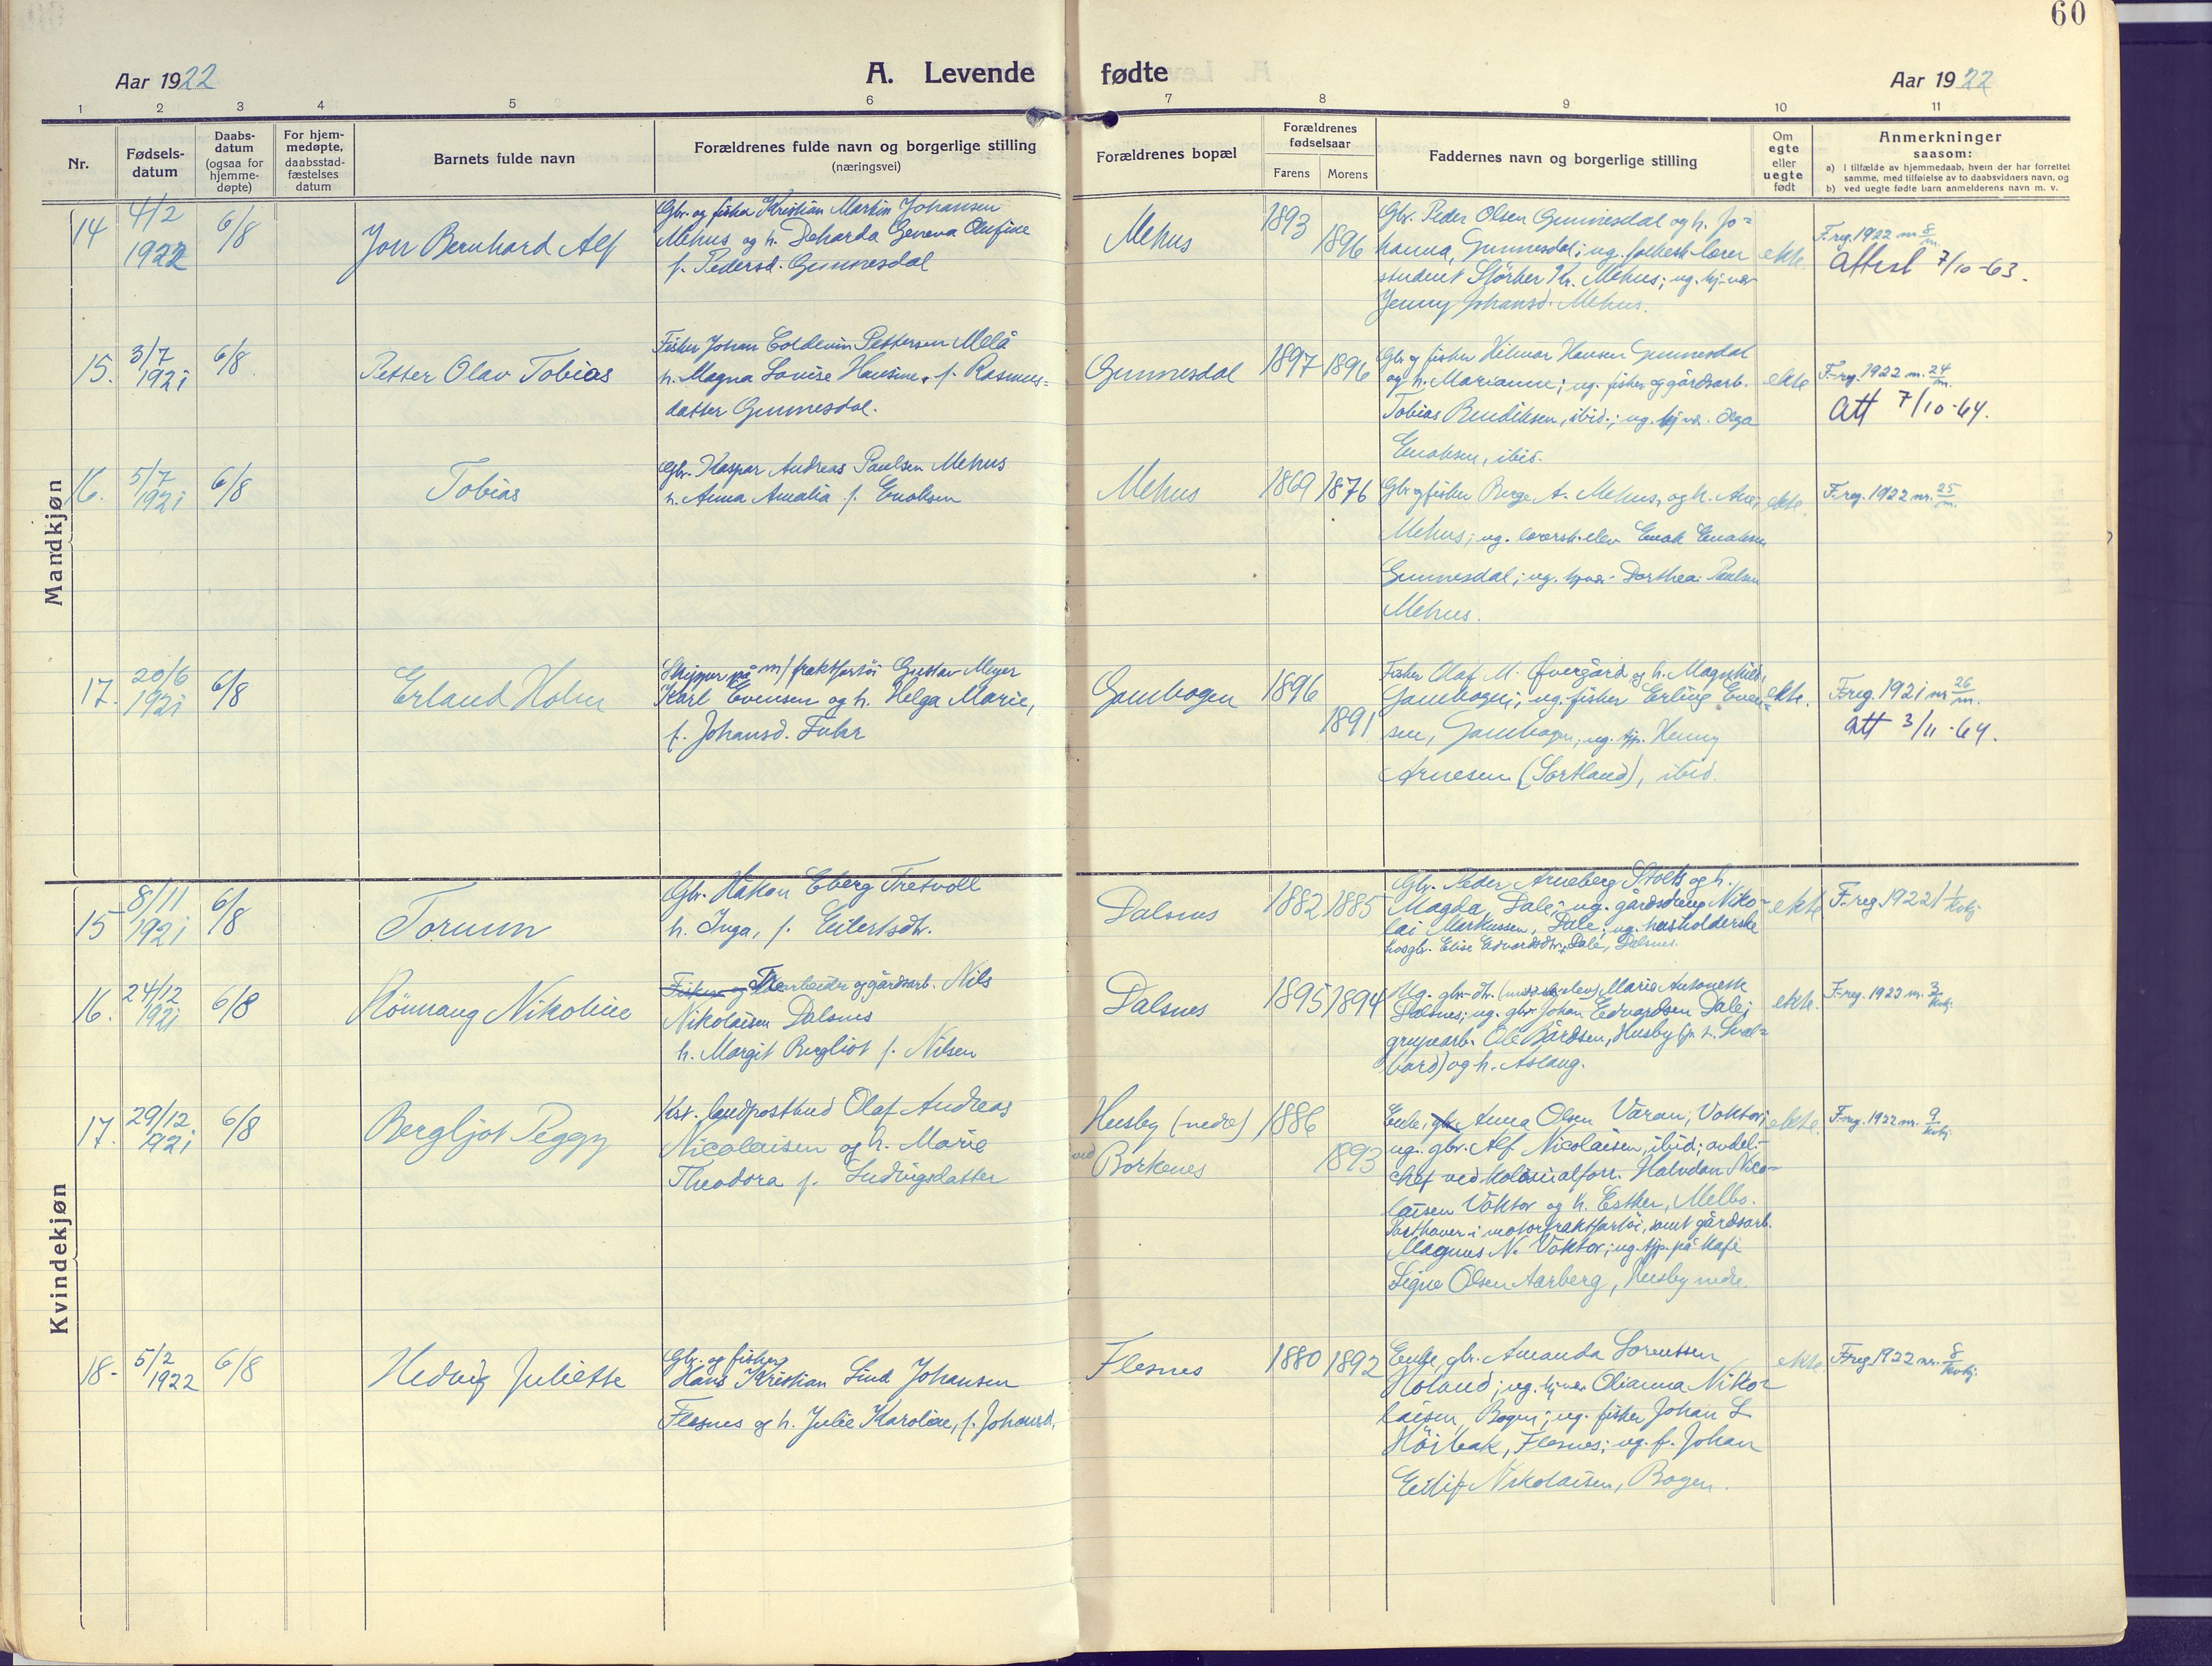 60
Aar 1922
A. Levende fødte
Aar 1922
1 2 3 4 5 6 7 8 9 10 11
Nr.
Fødsels-
datum
Daabs-
datum
(ogsaa for
hjemme-
døpte)
For hjem-
medøpte,
daabsstad-
fæstelses
datum
Barnets fulde navn
Forældrenes fulde navn og borgerlige stilling
(næringsvei)
Forældrenes bopæl
Forældrenes
fødselsaar
Farens Morens
Faddernes navn og borgerlige stilling
Om
egte
eller
uegte
født
Anmerkninger
saasom:
a) i tilfælde av hjemmedaab, hvem der har forrettet
samme, med tilføielse av to daabsvidners navn, og
b) ved uegte fødte barn anmelderens navn m. v.
Mandkjøn
14
4/2
1922
6/8
Jon Bernhard Alf
Gbr. og fisker Kristian Martin Johansen
Mehus og h. Deharda Geneva Olufine
f. Pedersd. Gunnesdal
Mehus
1893
1896
Gbr. Peder Olsen Gunnesdal og h. Jo=
hanna, Gunnesdal; ug. folkesk. lærer
student Størker Kr. Mehus; ug. hj. vær
Jenny Johansd. Mehus.
ekte.
F.reg. 1922 nr. 8/m.
Attest 7/10-63.
15.
3/7
1921
6/8
Petter Olav Tobias
Fisker Johan Coldevin Pettersen Melå
h. Magna Lovise Hansine, f. Rasmus=
datter Gunnesdal.
Gunnesdal
1897 1896
Gbr. og fisker Hilmar Hansen Gunnesdal
og h. Marianne; ug. fisker og gårdsarb.
Tobias Bendiksen, ibid.; ug. hj. vær. Olga
Enoksen, ibid.
ekte
F.reg. 1922 nr. 24/m.
Att 7/10-64.
16.
5/7
1921
6/8
Tobias
Gbr. Kaspar Andreas Paulsen Mehus
h. Anna Amalia f. Enoksen
Mehus
1869 1876
Gbr. og fisker Berge A. Mehus, og h.
Mehus; ug. lærersk. elev Enok Enoksen
Gunnesdal; ug. hj. vær. Dorthea Paulsen
Mehus.
ekte.
F.reg. 1922 nr. 25/m.
17.
20/6
1921
6/8
Erland Holm
Skipper på m/ fraktfartöi Gustav Meyer
Karl Evensen og h. Helga Marie,
f. Johansd. Fuhr
Gambogen
1896
1891
Fisker Olaf M. Øvergård og h. Magnhild,
Gambogen; ug. fisker Erling Even=
sen, Gambogen; ug. tjp. Henny
Arnesen (Sortland), ibid.
ekte.
F.reg. 1921 nr. 26/m.
Att 3/11-64.
Kvindekjøn
15
8/11
1921
6/8
Torunn
Gbr. Håkon Eberg Tretvoll
h. Inga, f. Eilertsdtr.
Dalsnes
1882 1885
Gbr. Peder Arneberg Stoltz og h.
Magda, Dale; ug. gårdsdreng Niko-
lai Markussen, Dale; ug. husholderske
hos gbr. Elise Edvardsdtr., Dale, Dalsnes.
ekte
F.reg. 1922 1/kvkj.
16.
24/12
1921
6/8
Rönnaug Nikoline
arbeider og gårdsarb. Nils
Nikolaisen Dalsnes
h. Margit Bergliot f. Nilsen
Dalsnes
1895 1894
Ug. gbr.-dtr. Marie Antonette
Dalsnes; ug. gbr. Johan Edvardsen Dale;
grupearb. Ole Bårdsen, Husby (p. t. Sval=
bard) og h. Aslaug.
ekte.
F.reg. 1922 nr. 3/kvkj.
17.
29/12
1921
6/8
Bergljot Peggy
Kst. landpostbud Olaf Andreas
Nicolaisen og h. Marie
Theodora f. Ludvigsdatter
Husby (nedre)
ved Borkenes
1886
1893
Enke, Anna Olsen Våran, Voktor;
ug. gbr. Alf Nicolaisen, ibid; avdel.-
chef ved kolonialforr. Halvdan Nico-
laisen Voktor og h. Esther, Melbo.
Parthaver i motorfraktfartöi, samt gårdsarb.
Magnus N. Voktor; ug. tjp. på kafe
Signe Olsen Aarberg, Husby nedre.
ekte.
F.reg. 1922 nr. 9/kvkj.
18.
5/2
1922
6/8
Hedvig Juliette
Gbr. og fisker
Hans Kristian Lind Johansen
Flesnes og h. Julie Karoline, f. Johansd.
Flesnes
1880 1892
Enke, gbr. Amanda Lorentsen
Holand; ug. hj. vær. Olianna Niko-
laisen, Bogen; ug. fisker Johan L.
Höibak, Flesnes; ug. f. Johan
Eilif Nikolaisen, Bogen.
ekte.
F.reg. 1922 nr. 8/kvkj.